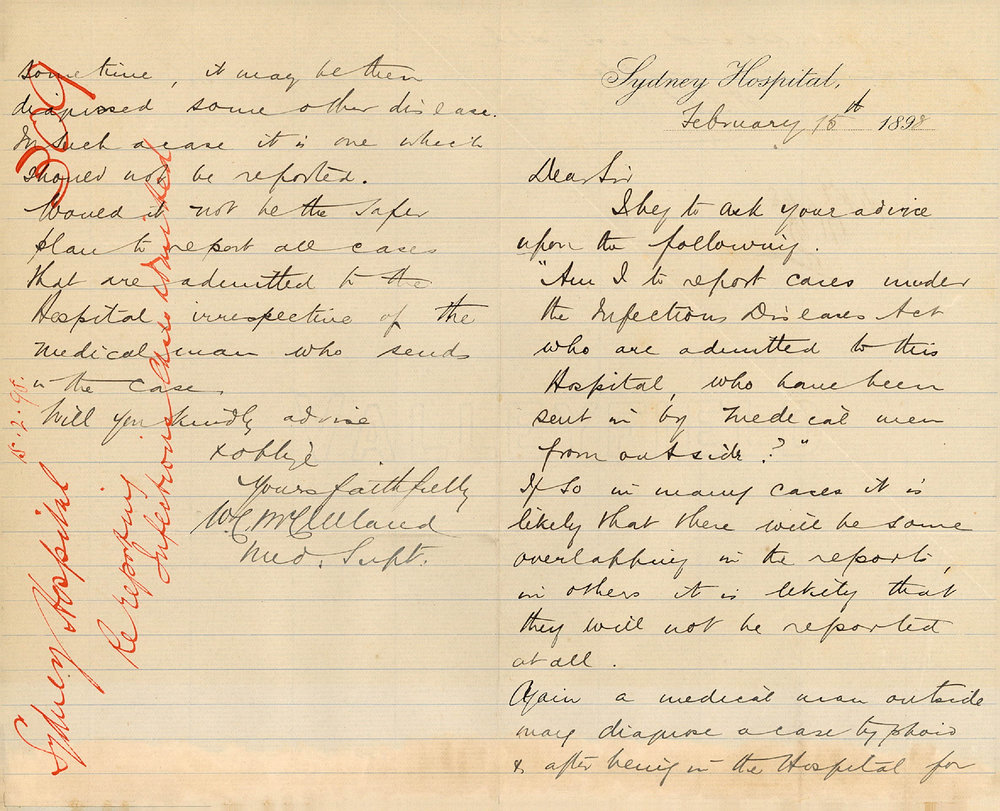 Sydney Hospital,
February 15th 1898
Dear Sir
I beg to ask your advice
upon the following.
"Am I to report cases under
the Infectious Diseases Act
who are admitted to this
Hospital, who have been
sent in by medical men
from outside?"
If so in many cases it is
likely that there will be some
overlapping in the reports,
in others it is likely that
they will not be reported
at all.
Again a medical man outside
may diagnose a case typhoid
& after being in the Hospital for
sometime, it may be then
diagnosed some other disease.
In such a case it is one which
should not be reported.
Would it not be the safer
plan to report all cases
that are admitted to the
Hospital irrespective of the
medical man who sends
in the case.
Will you kindly advise
& oblige
Yours faithfully
Med. Supt.
309
Sydney Hospital 15.2.98.
Re reporting
Infectious Cases admitted